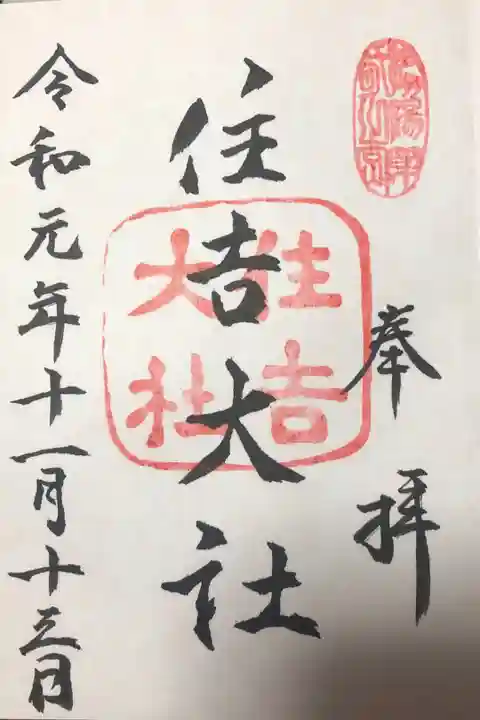 奉拝
住吉大社
住吉大社
令和元年十一月十三日